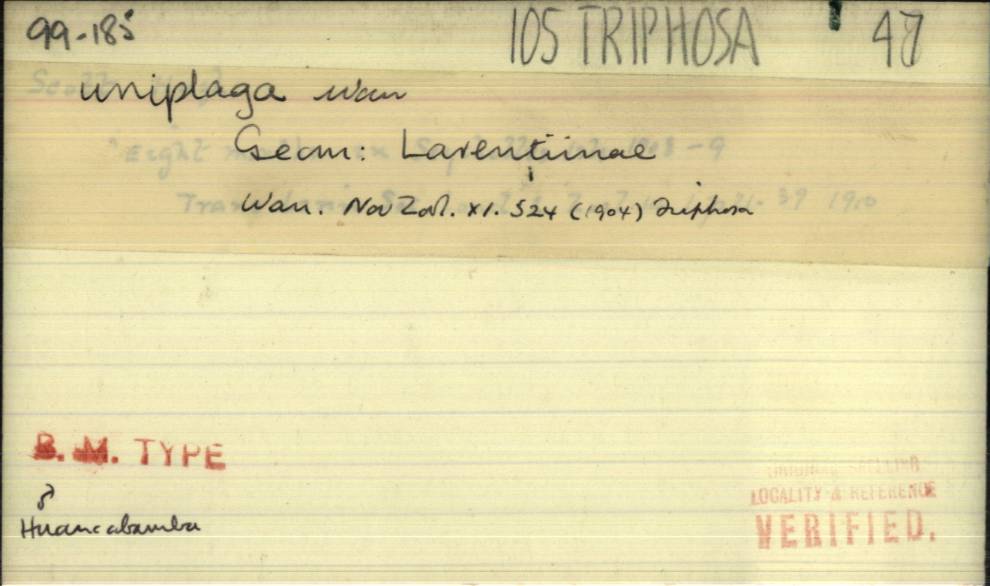 99-185 105 TRIPHOSA 47
uniplaga Warr
Geom: Larentiinae
Warr. Nov Zool. XI. 524 (1904) Triphosa
B. M. TYPE
♂
Huancabamba
ORIGINAL SPELLING
LOCALITY & REFERENCE
VERIFIED.